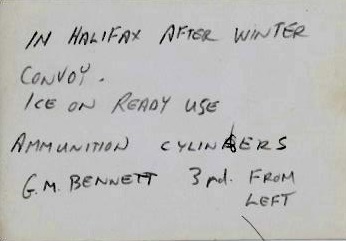 IN HALIFAX AFTER WINTER
CONVOY.
ICE ON READY USE
AMMUNITION CYLINDERS
G.M. BENNETT 3 rd. FROM
LEFT